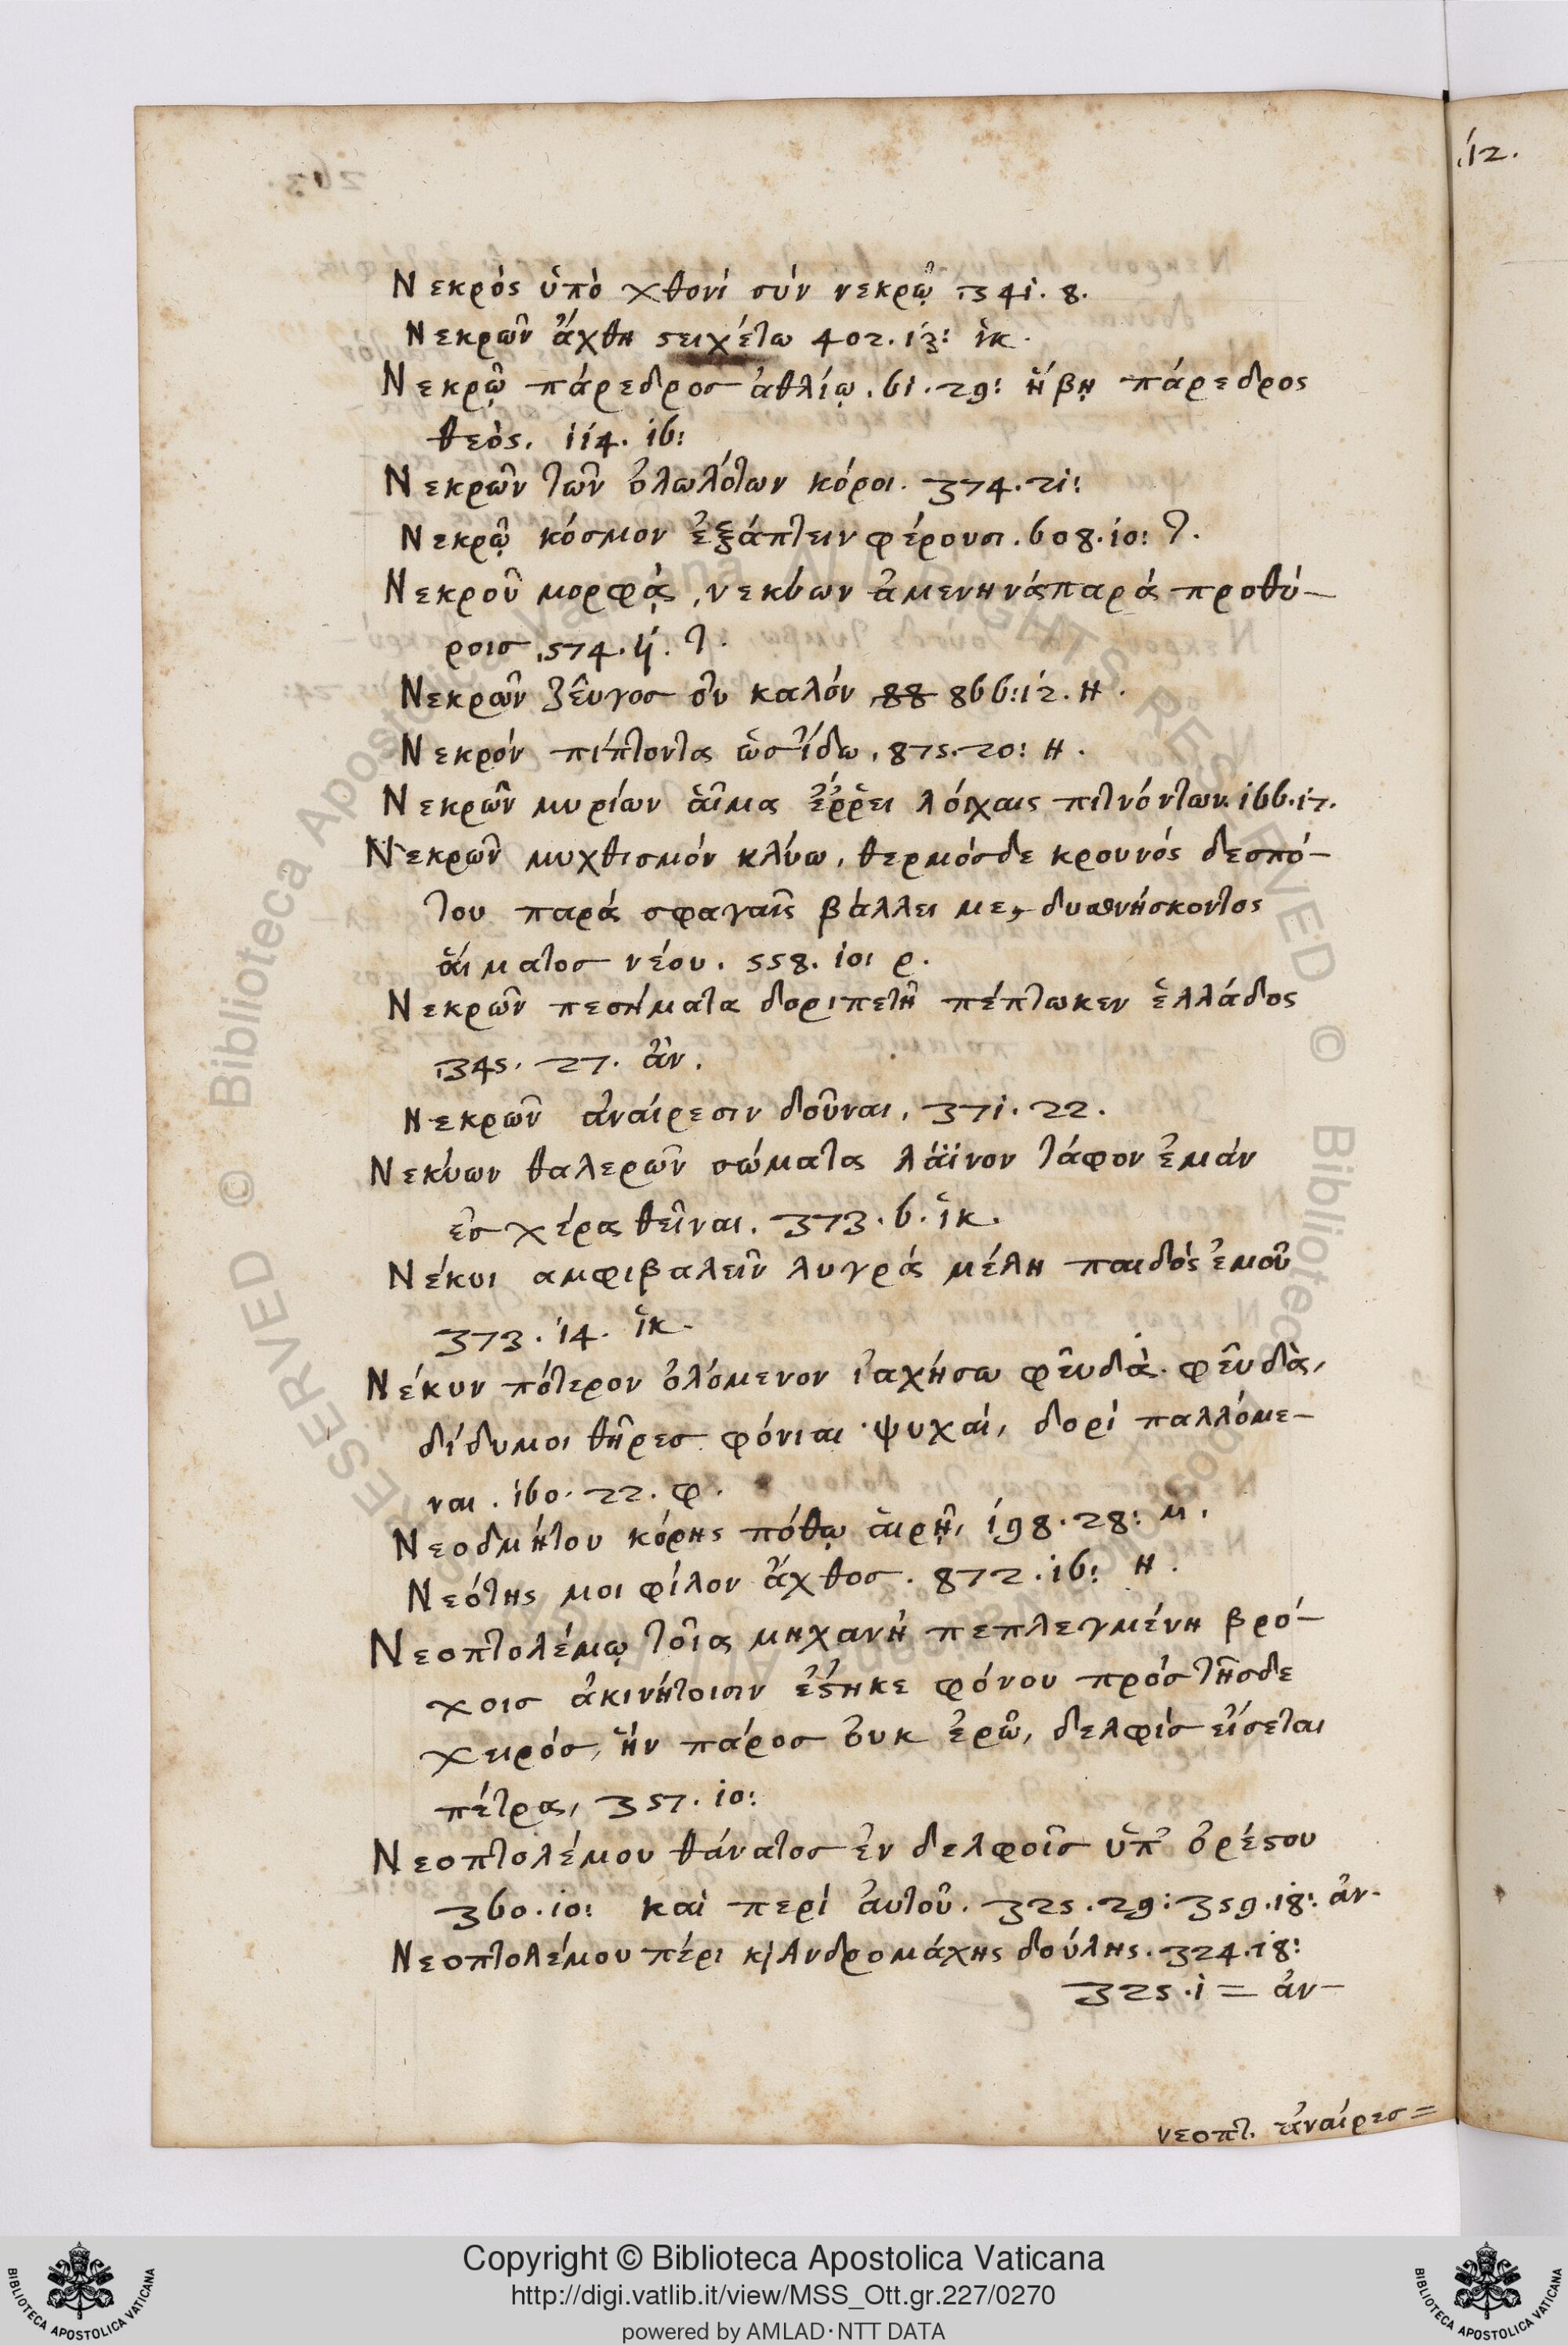 Νεκρὸς ὑπὸ χθονὶ σὺν νεκρῷ 341. 8.
Νεκρῶν ἄχθη στειχέτω 402. 13: ἱκ.
Νεκρῷ πάρεδρος ἀθλίῳ. 61. 29: ἥβῃ πάρεδρος
θεός. 114. 16:
Νεκρῶν τῶν ὀλωλότων κόροι. 374. 21:
Νεκρῷ κόσμον ἐξάπτειν φέρουσι. 608. 10: τ.
Νεκροῦ μορφὰς, νεκύων ἀμενηνὰς παρὰ προθύ-
ροις. 574. τ.
Νεκρῶν ζεῦγος οὐ καλόν 866: 12. Η.
Νεκρόν πίπτοντας ὡς ἴδω. 875. 20: Η.
Νεκρῶν μυρίων αἷμα ἔρρει λόγχαις πιτνόντων. 166. 17.
Νεκρῶν μυχθισμόν κλύω, θερμόσδε κρουνός δεσπό-
του παρά σφαγαῖς βάλλει με, δυσθνήσκοντος
αἵματος νέου. 558. 10: ρ.
Νεκρῶν πεσήματα δοριπετῆ πέπτωκεν ἑλλάδος
345. 27. ἀν.
Νεκρῶν ἀναίρεσιν δοῦναι, 371. 22.
Νεκύων θαλερῶν σώματα λάϊνον τάφον ἐμάν
ἐς χέρας θεῖναι. 373. 6. ἱκ.
Νέκυι αμφιβαλεῖν λυγρά μέλη παιδός ἐμοῦ
373. 14. ἱκ.
Νέκυν πότερον ὀλόμενον ἰαχήσω φεῦ δᾶ. φεῦ δᾶ,
δίδυμοι θῆρες φόνιαι ψυχαί, δορί παλλόμε-
ναι. 160. 22. φ.
Νεοδμήτου κόρης πόθῳ αἱρῇ, 198. 28: μ.
Νεότης μοι φίλον ἄχθος. 872. 16: Η.
Νεοπτολέμῳ τοῖα μηχανή πεπλεγμένη βρό-
χοις ἀκινήτοισιν ἕστηκε φόνου πρός τῆσδε
χειρός, ἥν πάρος οὐκ ἐρῶ, δελφίς εἴσεται
πέτρα, 357. 10:
Νεοπτολέμου θάνατος ἐν δελφοῖς ὑπ' ὀρέστου
360. 10: καί περί αὐτοῦ. 325. 29: 359. 18: ἀν-
Νεοπτολέμου πέρι κ Ανδρομάχης δούλης. 324. 18:
325. 1 = ἀν-
νεοπτ. ἀναίρεσ=
12.
Copyright © Biblioteca Apostolica Vaticana
http://digi.vatlib.it/view/MSS_Ott.gr.227/0270
powered by AMLAD·NTT DATA